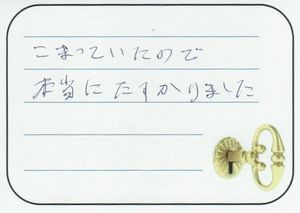 こまっていたので
本当にたすかりました